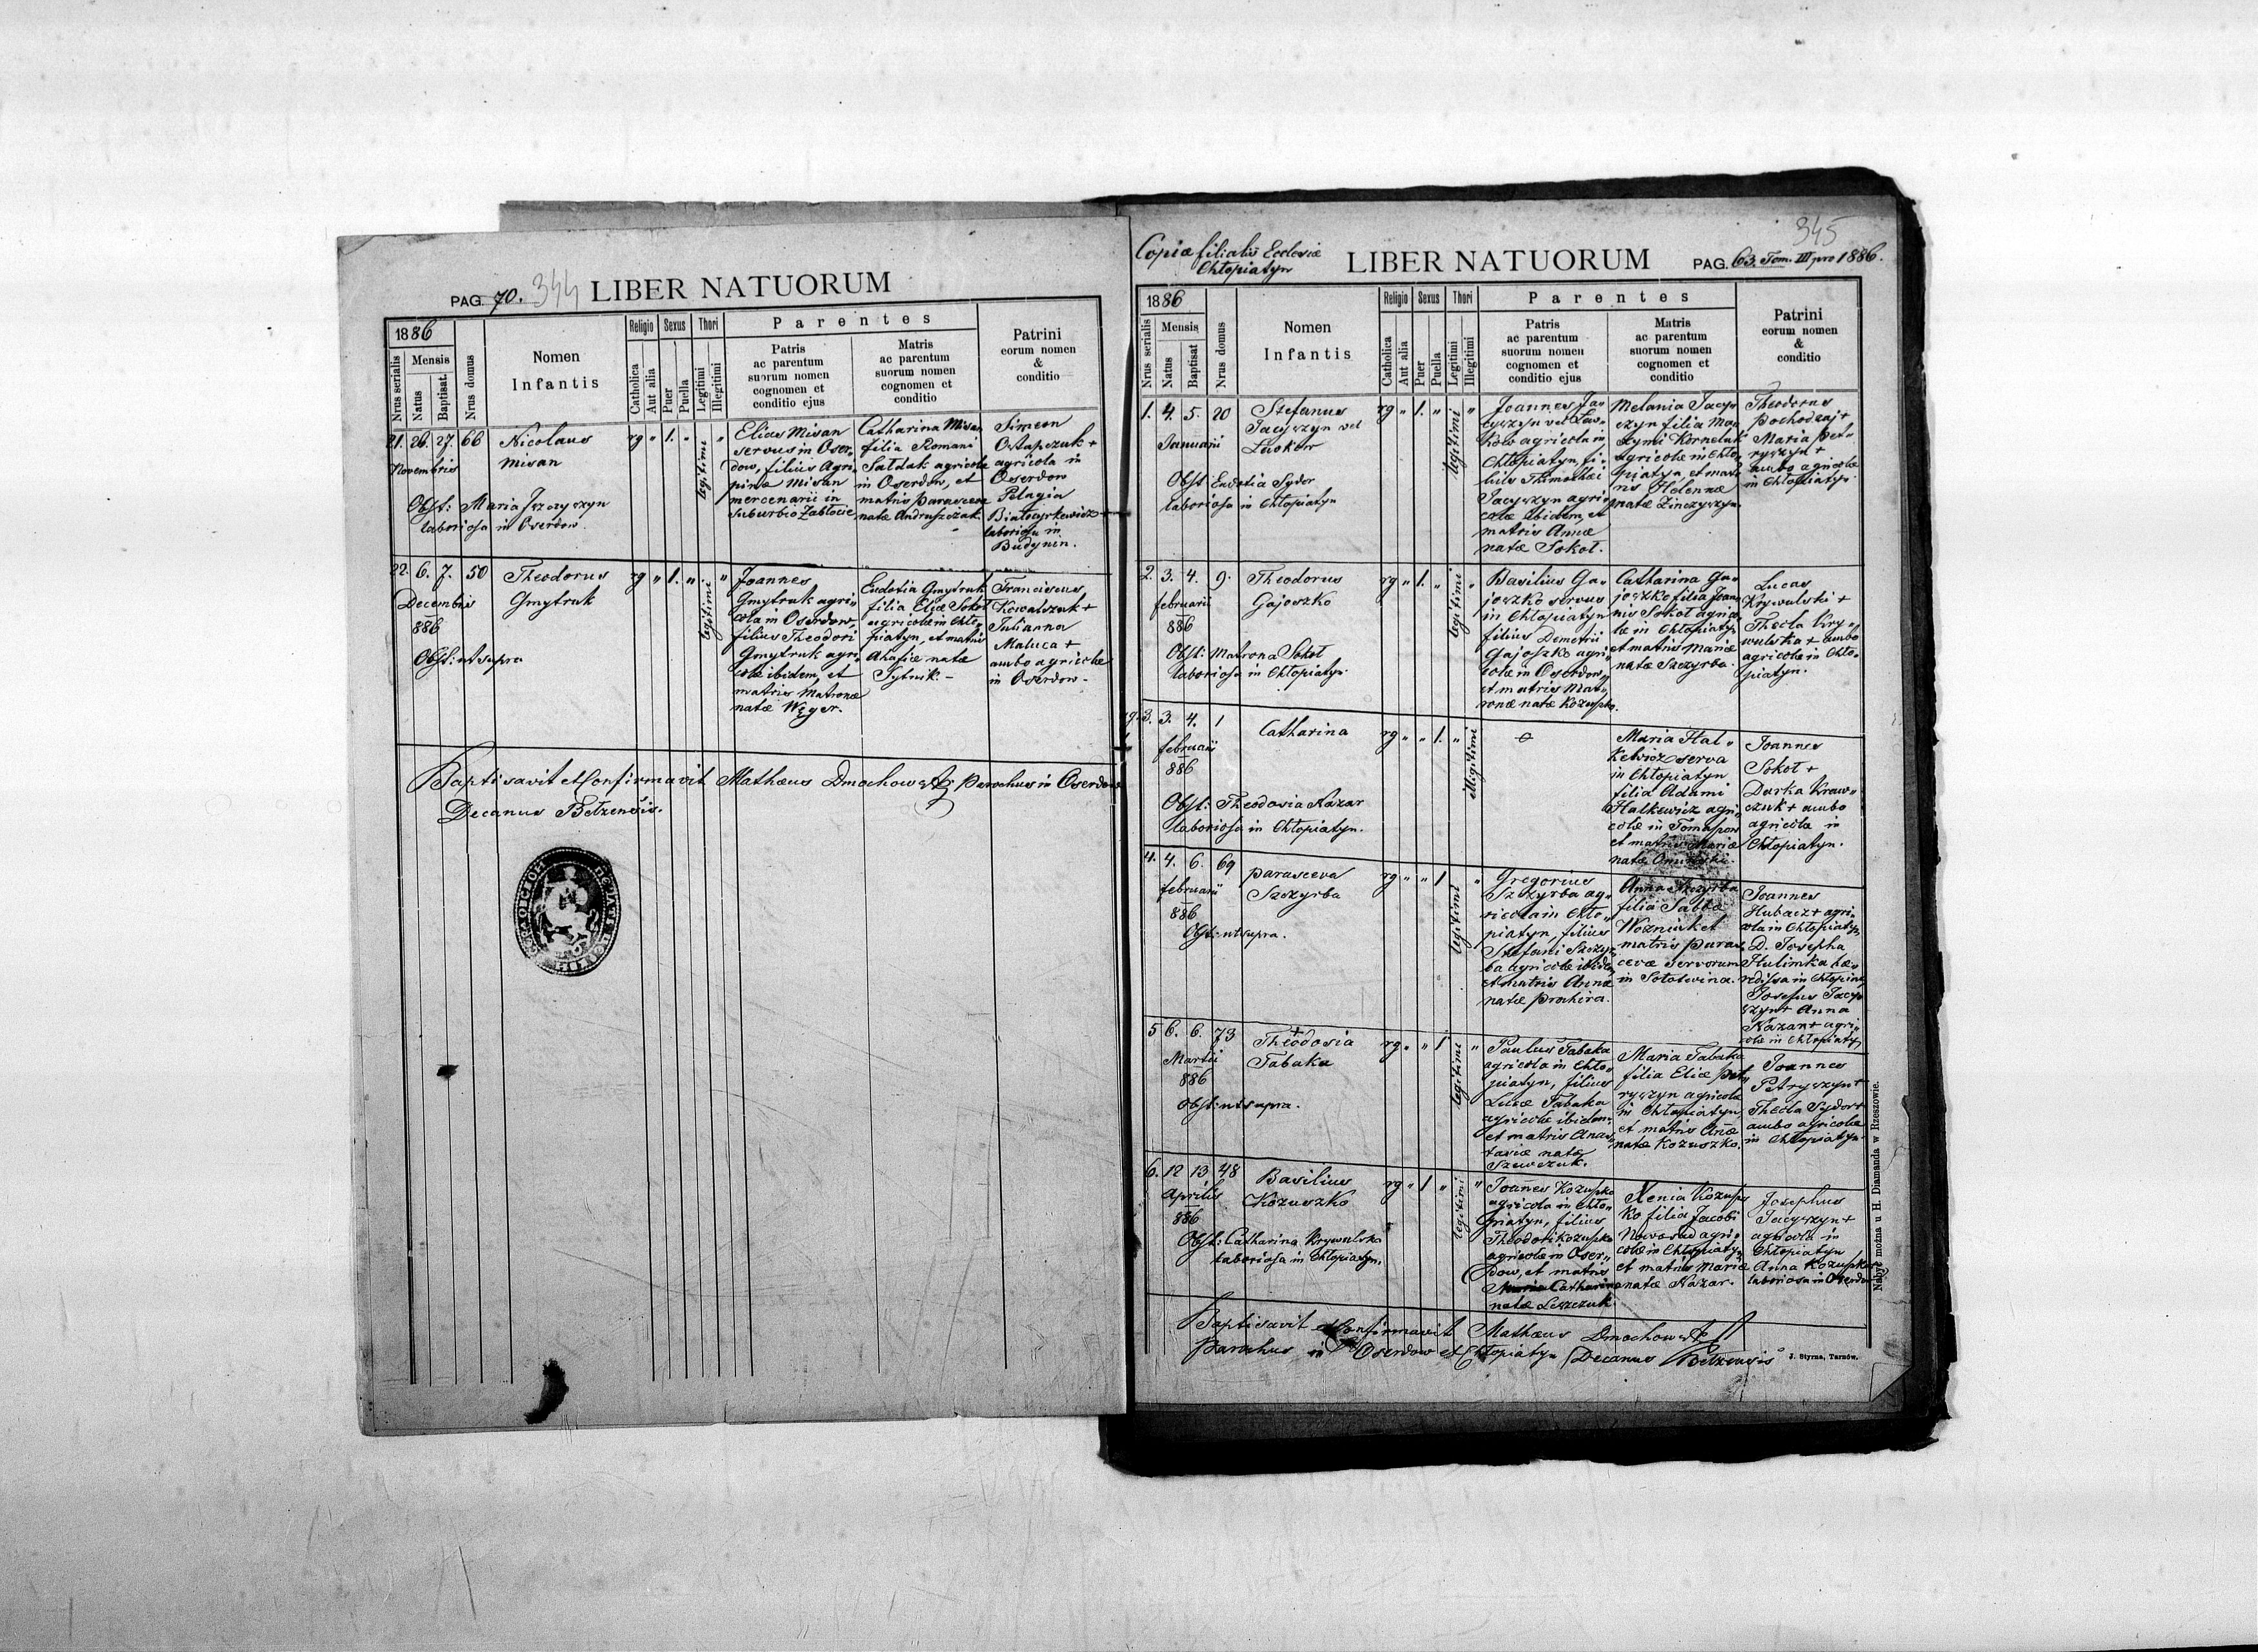 PAG. 70. 344 LIBER NATUORUM
1886
Nrus serialis
Mensis
Natus
Baptisat.
Nrus domus
Nomen
Infantis
Religio
Catholica
Aut alia
Sexus
Puer
Puella
Thori
Legitimi
Illegitimi
Parentes
Patris
ac parentum
suorum nomen
cognomen et
conditio ejus
Matris
ac parentum
suorum nomen
cognomen et
conditio
Patrini
eorum nomen
&
conditio
21. 26. 27. 66
Novembris
Nicolaus
Misan
rg " 1. " legitimi "
Obst: Maria
laboriosa in Oserdow.
Elias Misan
servus in Oser„
dow, filius Agri„
pinæ Misan
mercenarii in
suburbio Zabłocie
Catharina Misan
filia Romani
Sałdak agricolæ
in Oserdow, et
matris Parascevæ
natæ Andruszczak.
Simeon
Ostapczuk +
agricola in
Oserdow
Pelagia
laboriosa in
Budynin.
22. 6. 7. 50
Decembris
886
Theodorus
Gmytruk
rg " 1. " legitimi "
Obst: ut supra
Joannes
Gmytruk agri„
cola in Oserdow,
filius Theodori
Gmytruk agri„
colæ ibidem, et
matris Matronæ
natæ Węger.
Eudotia Gmytruk
filia Eliæ Sokoł
agricolæ in Chło„
piatyn, et matris
Ahafiæ natæ
Sytnik. –
Franciscus
Kowalczuk +
Julianna
Maluca +
ambo agricolæ
in Oserdow –
Baptisavit et Confirmavit Mathæus Dmochowski Parochus in Oserdow
Decanus Bełzensis.
Copiæ filialis Ecclesiæ
Chłopiatyn
LIBER NATUORUM
345
PAG. 63. Tom. III pro 1886.
1886
Nrus serialis
Mensis
Natus
Baptisat
Nrus domus
Nomen
Infantis
Religio
Catholica
Aut alia
Sexus
Puer
Puella
Thori
Legitimi
Illegitimi
Parentes
Patris
ac parentum
suorum nomen
cognomen et
conditio ejus
Matris
ac parentum
suorum nomen
cognomen et
conditio
Patrini
eorum nomen
&
conditio
1. 4. 5. 20
Januarii
Stefanus
Jacyszyn vel
rg " 1. " legitimi "
Obst Eudotia Sydor
laboriosa in Chłopiatyn
Joannes Ja„
cyszyn vel
agricola in
Chłopiatyn, fi„
lius Thimothei
Jacyszyn agri„
colæ ibidem, et
matris Annæ
natæ Sokoł.
Melania Jacy„
szyn filia Ma„
xymi Korneluk
agricolæ in Chło„
piatyn, et mat„
ris Helennæ
natæ Zinczyszyn.
Theodorus
Pochodzaj +
Maria Pet„
ryszyn +
ambo agricolæ
in Chłopiatyn.
2. 3. 4. 9.
februarii
886
Theodorus
Gajoszko
rg " 1. " legitimi "
Obst: Matrona Sokoł
laboriosa in Chłopiatyn.
Basilius Ga„
joszko servus
in Chłopiatyn
filius Demetrii
Gajoszko agri„
colæ in Oserdow,
et matris Mat„
ronæ natæ Kozuszko.
Catharina Ga„
joszko filia Joan„
nis Sokoł agrico„
læ in Chłopiatyn
et matris Mariæ
natæ Szczyrba.
Lucas
Krywulski +
Thecla Kry„
wulska + ambo
agricolæ in Chło„
piatyn.
3. 3. 4. 1
februarii
886
Catharina
rg " " 1. " illegitimi
Obst: Theodosia Nazar
laboriosa in Chłopiatyn.
Maria Hal„
kewicz serva
in Chłopiatyn
filia Adami
Halkewicz agri„
colæ in
et matris Mariæ
natæ
Joannes
Sokoł +
Darka Kraw„
czuk + ambo
agricolæ in
Chłopiatyn.
4. 4. 6. 69
februarii
886
Parasceva
Szczyrba
rg " " 1 legitimi "
Obst: ut supra.
Gregorius
Szczyrba ag„
ricola in Chło„
piatyn, filius
Stefani Szczyr„
ba agricolæ ibidem,
et matris Annæ
natæ Prochira.
Anna Szczyrba
filia Sabbæ
Wozniuk et
matris Paras„
cevæ servorum
in Sołotwina.
Joannes
Hubacz + agri„
cola in Chłopiatyn
D. Josepha
Hulimka hæ„
redissa in Chłopiatyn
Josefus Jacy„
szyn + Anna
Nazar + agri„
colæ in Chłopiatyn
5 6. 6. 73
Martii
886
+
Theodosia
Tabaka
rg " " 1 legitimi "
Obst: ut supra.
Paulus Tabaka
agricola in Chło„
piatyn, filius
Lucæ Tabaka
agricolæ ibidem,
et matris Anas„
tasiæ natæ
Szewczuk.
Maria Tabaka
filia Eliæ Pet„
ryszyn agricolæ
in Chłopiatyn,
et matris Annæ
natæ Kozuszko.
Joannes
Petryszyn +
Thecla Sydor +
ambo agricolæ
in Chłopiatyn
6. 12 13 48
Aprilis
886
Basilius
Kozuszko
rg " 1 " legitimi "
Obst: Catharina Krywulska
laboriosa in Chłopiatyn.
Joannes Kozuszko
agricola in Chło„
piatyn, filius
Theodori Kozuszko
agricolæ in Oser„
dow, et matris
Catharinæ
natæ Leszczuk.
Xenia Kozusz„
ko filia Jacobi
Nowosad agri„
colæ in Chłopiatyn
et matris Mariæ
natæ Nazar.
Josephus
Jacyszyn +
agricola in
Chłopiatyn
Anna Kozuszko
laboriosa in Oserdow
Baptisavit et Confirmavit Mathæus Dmochowski
Parochus in Oserdow et Chłopiatyn Decanus Bełzensis
J. Styrna, Tarnów.
Nabyć można u H. Diamanda w Rzeszowie.